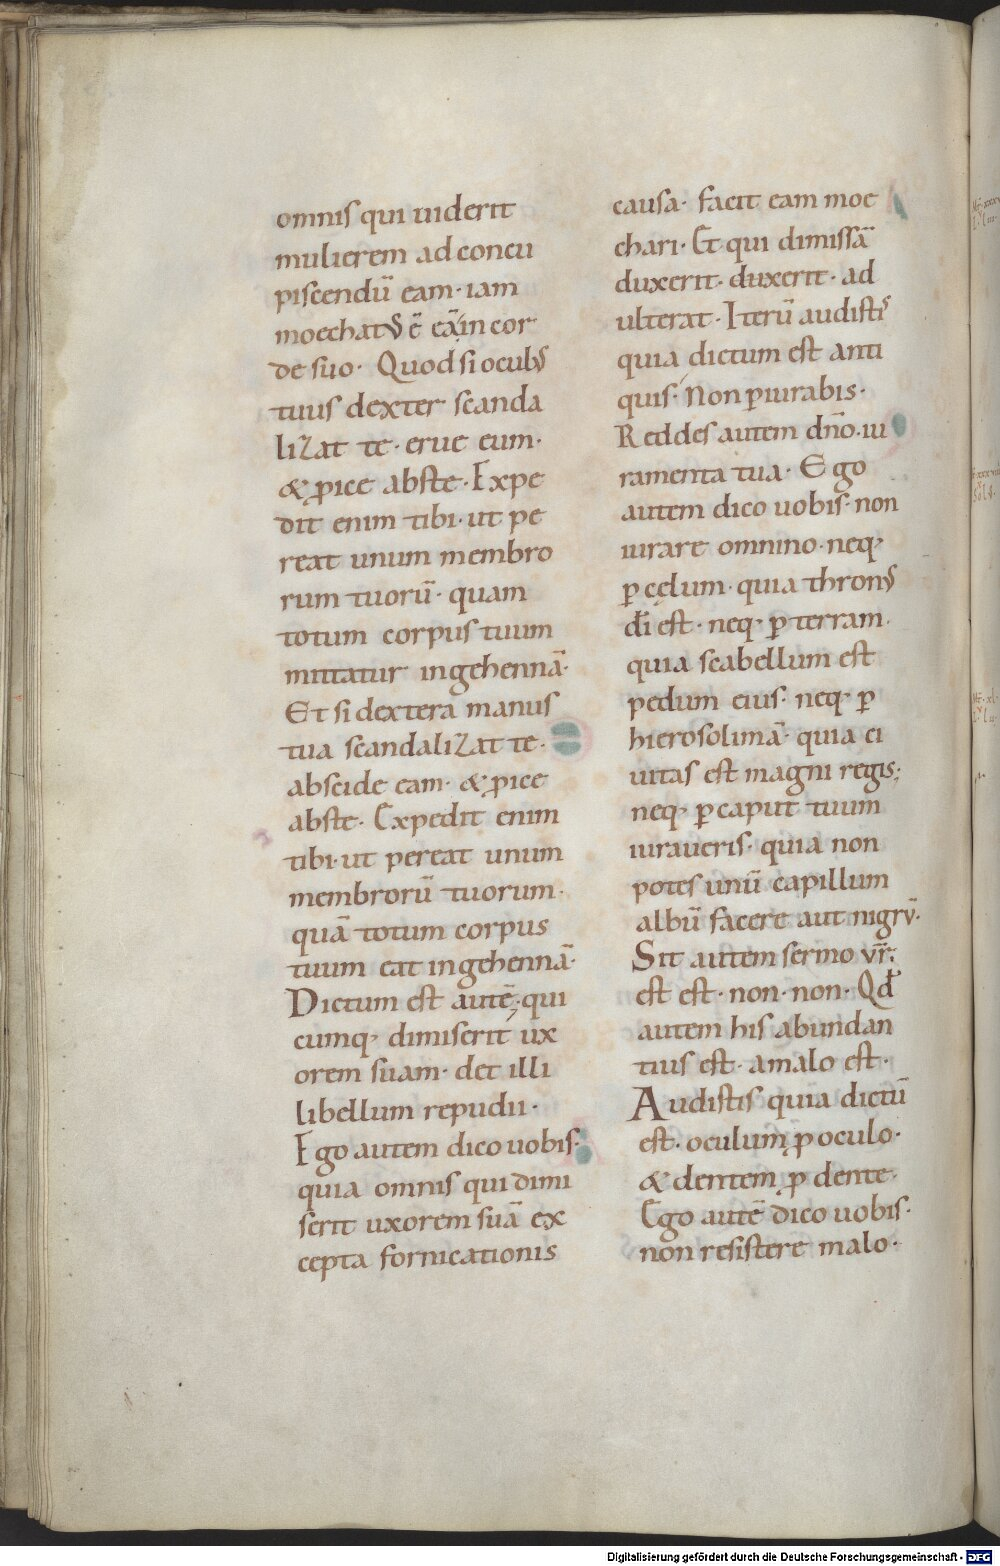 omnis qui uiderit
mulierem ad concu
piscendū eam· iam
moechatꝰ ē eā in cor
de suo· Quod si oculꝰ
tuus dexter scanda
lizat te· erue eum·
& ꝓice abste· Expe
dit enim tibi· ut pe
reat unum membro
rum tuorū· quam
totum corpus tuum
mittatur ingehennā·
Et si dextera manus
tua scandalizat te·
abscide eam· & ꝓice
abste· Expedit enim
tibi· ut pereat unum
membrorū tuorum·
quā totum corpus
tuum eat ingehennā·
Dictum est autē· qui
cumq; dimiserit ux
orem suam· det illi
libellum repudii·
Ego autem dico uobis·
quia omnis qui dimi
serit uxorem suā ex
cepta fornicationis
causa· facit eam moe
chari· Et qui dimissā
duxerit· duxerit· ad
ulterat· Iterū audistiˢ
quia dictum est anti
quis· Non ꝑiurabis·
Reddes autem dn̄o· iu
ramenta tua· Ego
autem dico uobis· non
iurare omnino· neq;
ꝑ cęlum· quia thronꝰ
dī est· neq; ꝑ terram·
quia scabellum est
pedum eius· neq; ꝑ
hierosolimā· quia ci
uitas est magni regis;
neq; ꝑ caput tuum
iuraueris· quia non
potes unū capillum
albū facere aut nigrū·
Sit autem sermo vr̄;
est est· non· non· Qđ
autem his abundan
tius est· amalo est·
Audistis quia dictū
est· oculum ꝓ oculo·
& dentem ꝓ dente·
Ego autē dico uobis·
non resistere malo·
Digitalisierung gefördert durch die Deutsche Forschungsgemeinschaft - DFG